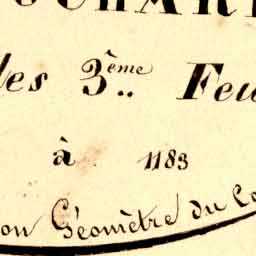 les 3ème.. Feu
à 1183
on Géomètre du Ca